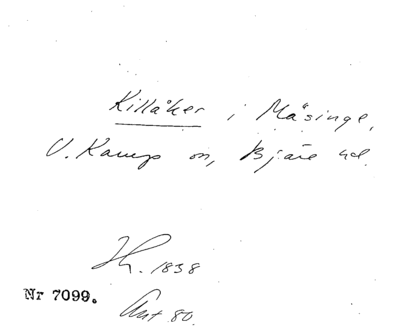 Killåker i Måsinge,
V. Karup sn, Bjäre hd.
Lh. 1838
Nr 7099.
Ant 80.